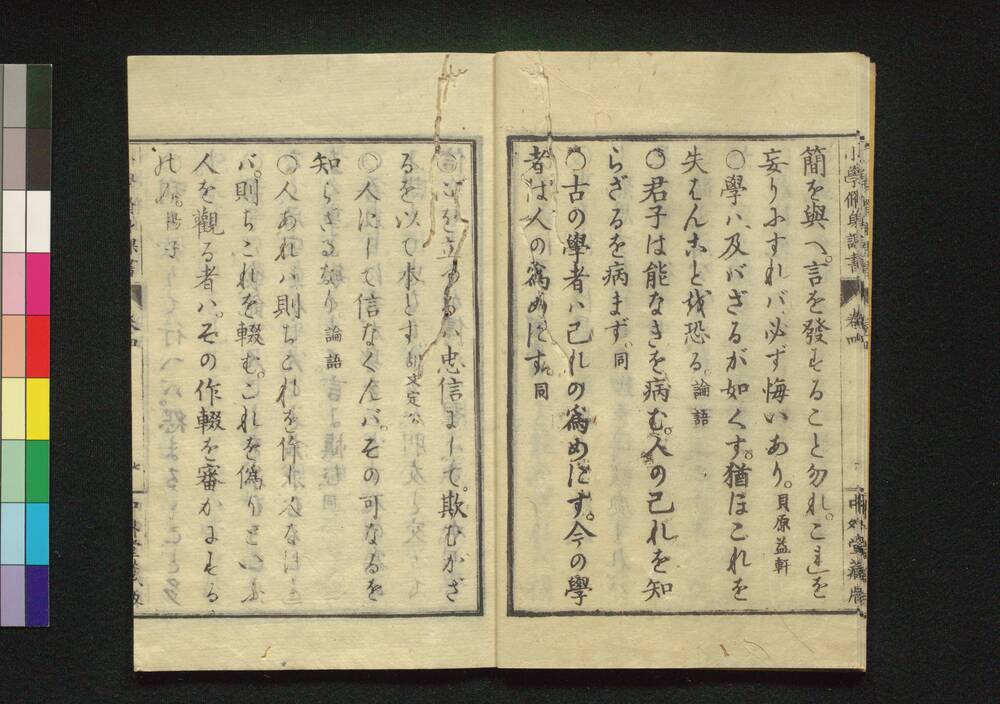 小學修身訓 卷四 中外堂藏版
簡を與へ。言を發すること勿れ。これを
妄りにすれバ。必ず悔いあり。貝原益軒
〇學ハ及バざるが如くす。猶ほこれを
失はんことを恐る。論語
〇君子は能なきを病む。人の己れを知
らざるを病まず。同
〇古の學者ハ己れの爲めにす。今の學
者は人の爲めにす。同
を立するハ。忠信にして。欺むかざ
るを以て本とす。胡文定公
〇人にして信なくんバ。その可なるを
知らざるなり。論語
〇人あれバ則ちこれを作し。人なけれ
バ。則ちこれを輟む。これを僞りといふ
人を觀る者ハ。その作輟を審かにする
のみ。揚子